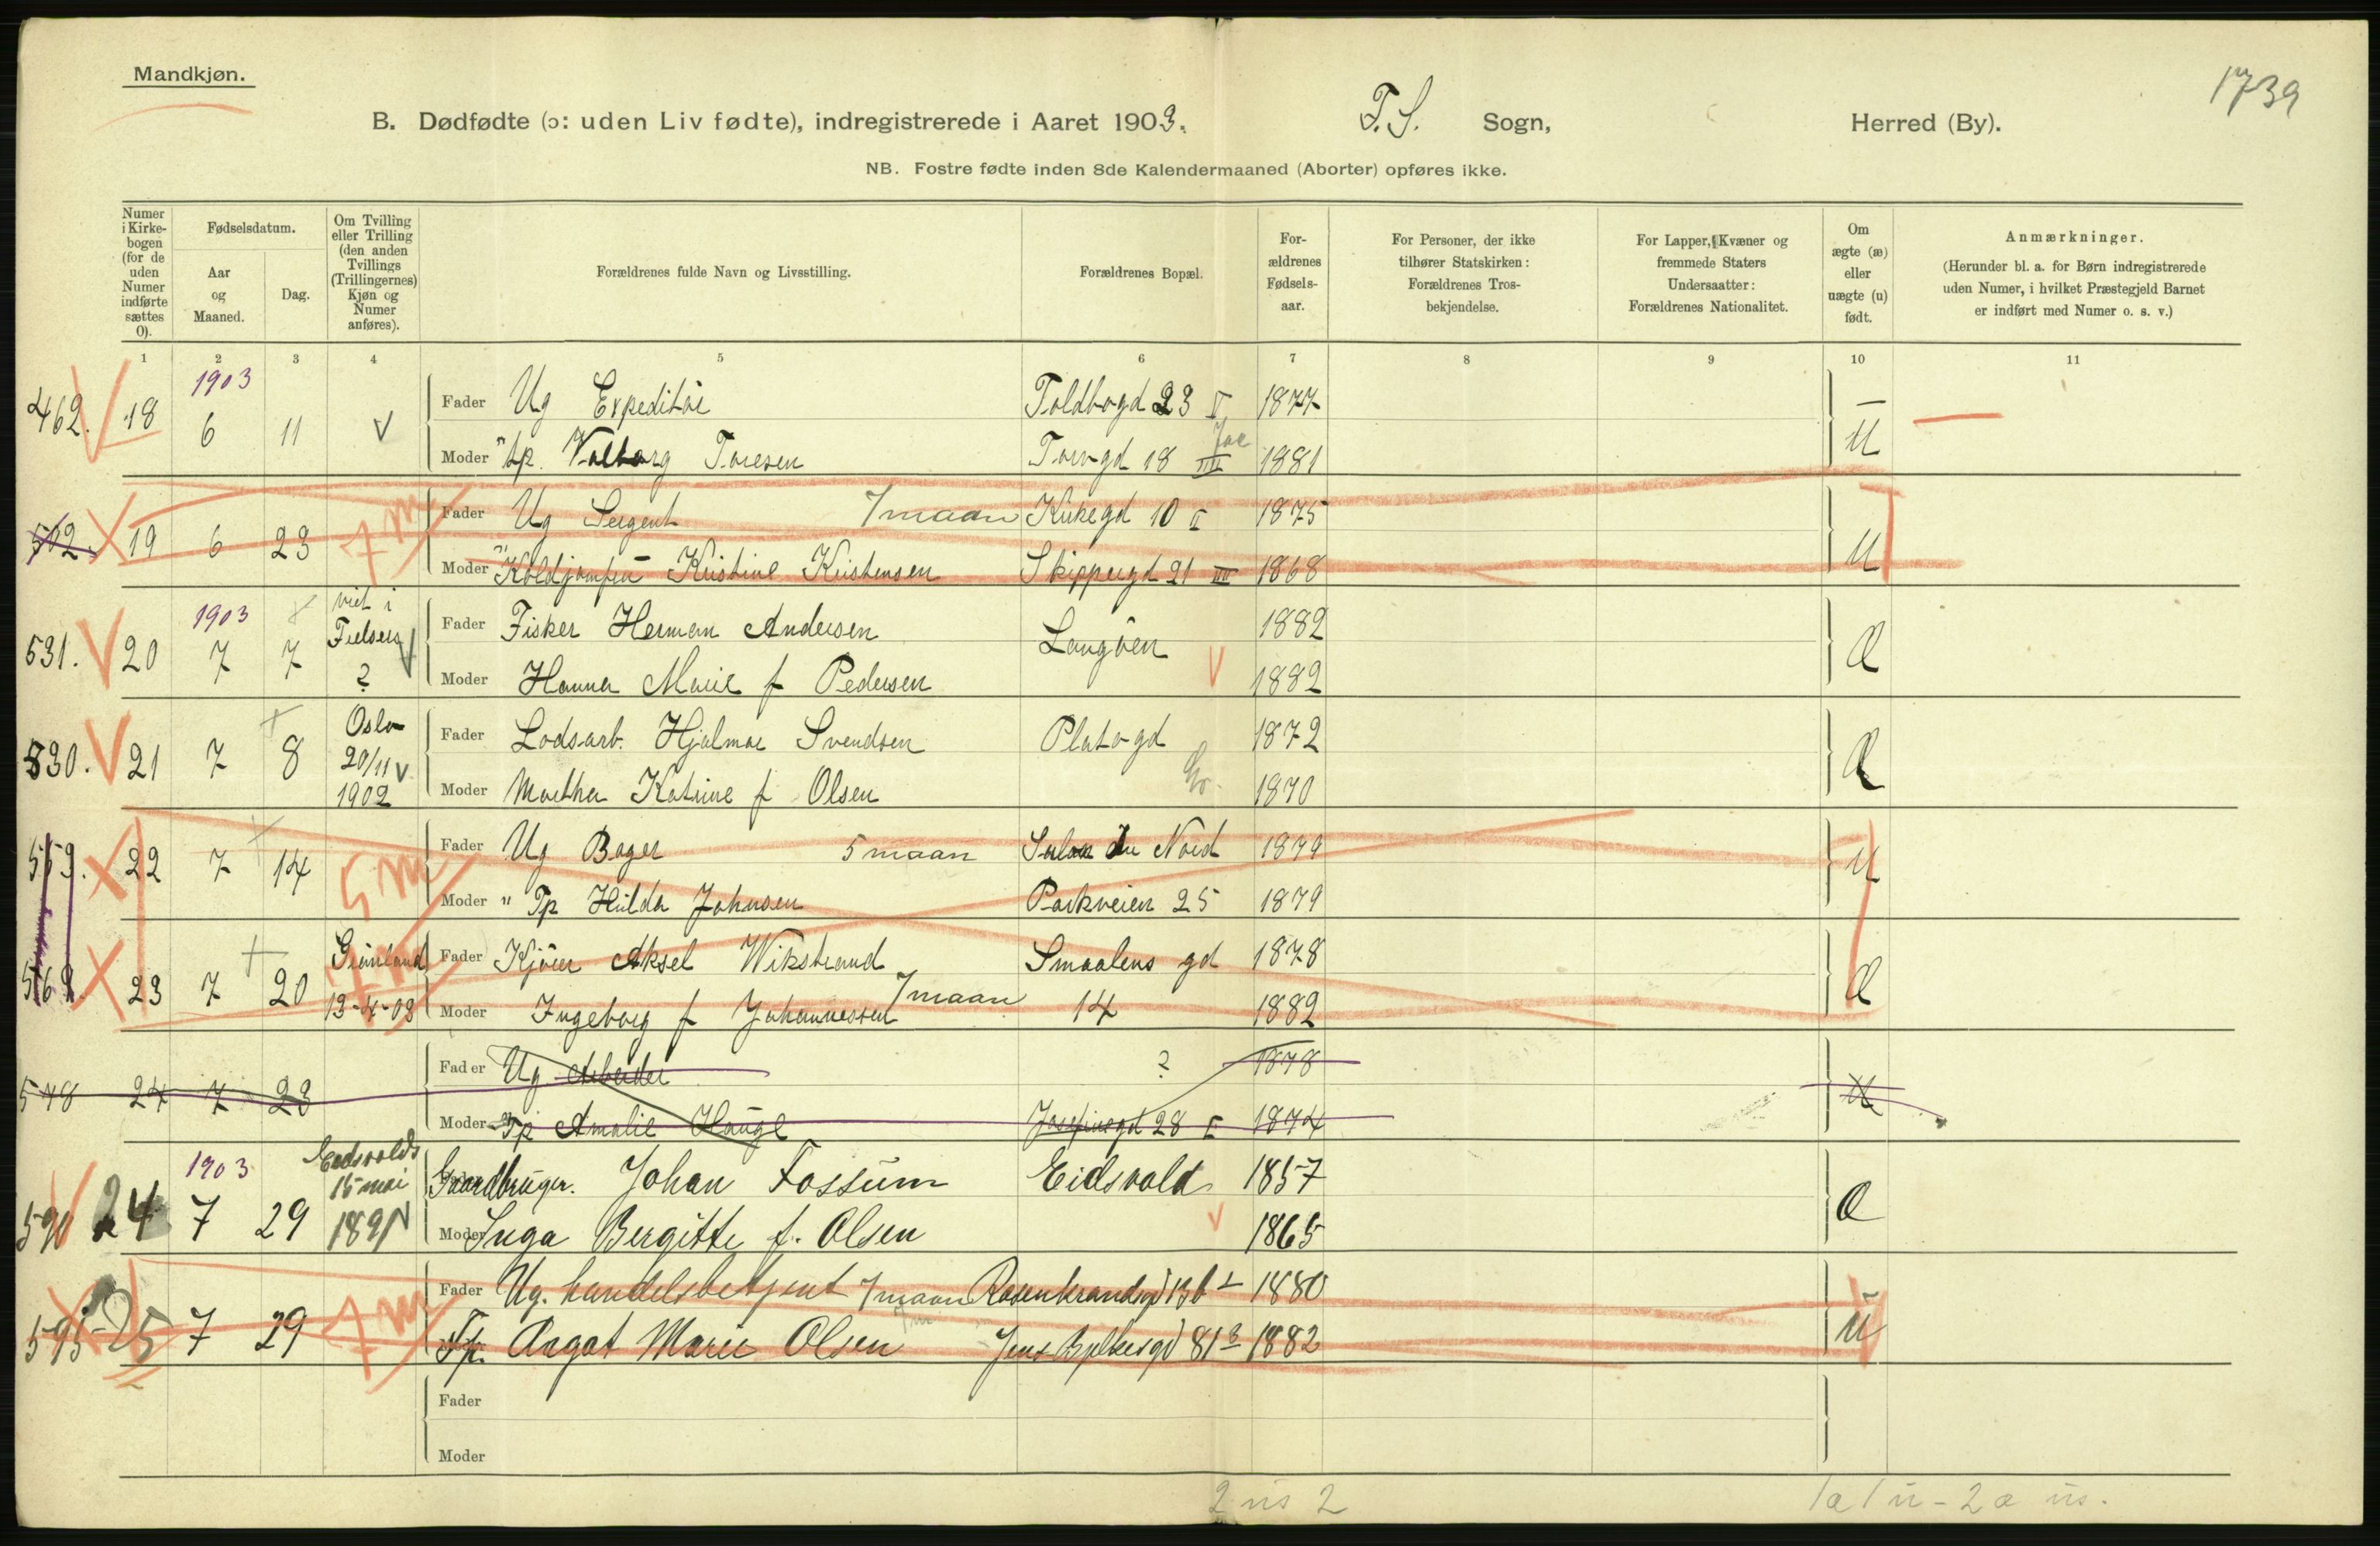 Mandkjøn.
1739
B. Dødfødte (ɔ: uden Liv fødte), indregistrerede i Aaret 1903. F. S. Sogn, Herred (By).
NB. Fostre fødte inden 8de Kalendermaaned (Aborter) opføres ikke.
Numer i Kirke-bogen (for de uden Numer indførte sættes 0).
Fødselsdatum.
Aar og Maaned.
Dag.
Om Tvilling eller Trilling (den anden Tvillings (Trillingernes) Kjøn og Numer anføres).
Forældrenes fulde Navn og Livsstilling.
Forældrenes Bopæl.
For-ældrenes Fødsels-aar.
For Personer, der ikke tilhører Statskirken: Forældrenes Tros-bekjendelse.
For Lapper, Kvæner og fremmede Staters Undersaatter: Forældrenes Nationalitet.
Om ægte (æ) eller uægte (u) født.
Anmærkninger.
(Herunder bl. a. for Børn indregistrerede uden Numer, i hvilket Præstegjeld Barnet er indført med Numer o. s. v.)
1 2 3 4 5 6 7 8 9 10 11
1903
462. 18 6 11 Fader Ug Expeditør Toldbogd 23 1877
Moder Tp. Valborg Toresen Torvgd 18 1881 U
502. 19 6 23 7 m Fader Ug Sergent 7 maan Kirkegd 10 II 1875
Moder Koldjomfru Kristine Kristensen Skippergd 21 1868 U
1903 viet i
531. 20 7 7 ? Fader Fisker Herman Andersen Langøen 1882
Moder Hanna Marie f Pedersen 1882 Æ
530. 21 7 8 Oslo 20/11 1902 Fader Lodsarb. Hjalmar Svendsen Platogd 1872
Moder Marthea Katrine f Olsen 1870 Æ
559. 22 7 14 5 m Fader Ug Bager 5 maan Salon du Nord 1879
Moder " Tp Hilda Johnsen Parkveien 25 1879 U
569. 23 7 20 Grønland 13-4-03 Fader Kjører Aksel Wikstrand Smaalens gd 1878
Moder Ingeborg f Johannessen 7 maan 14 1882 Æ
578 24 7 23 Fader Ug Arbeider ? 1878
Moder Tp Amalie Hauge Josefinegd 28 1874 U
1903 Eidsvolds 15 mai 1891
590 24 7 29 Gaardbruger. Johan Fossum Eidsvold 1857
Moder Inga Bergitte f. Olsen 1865 Æ
595 25 7 29 7 m Fader Ug. handelsbetjent 7 maan Rosenkrandsgd 13b 1880
Tp. Aagot Marie Olsen Jens Bjelkesgd 81 1882 U
Fader
Moder
2 us 2
1 æ 1 u - 2 æ us.